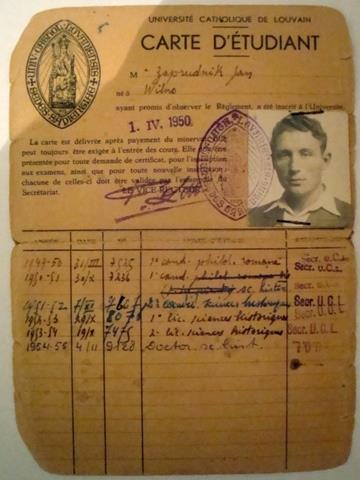 UNIVERSITÉ CATHOLIQUE DE LOUVAIN
CARTE D'ÉTUDIANT
M Zaprudnik Jan
né à Wilno
ayant promis d'observer le Règlement, a été inscrit à l'Université.
1. IV. 1950
La carte est délivrée après payement du minerval
peut toujours être exigée à l'entrée des cours. Elle
présentée pour toute demande de certificat, pour l'inscription
aux examens, ainsi que pour toute nouvelle inscription
chacune de celles-ci doit être validée par
Secrétariat.
LE VICE-RECTEUR
1949-50 31/III 7525 1e cand. philol. romane Secr. U.C.L.
1950-51 30/X 7236 1 cand. philol. sc. histor Secr. U.C.L.
1951-52 2e candi. sciences historiques Secr. U.C.L.
1952-53 8070 1e lic. sciences historiques Secr. U.C.L.
1953-54 19/X 7475 2e lic. sciences historiques Secr. U.C.L.
1954-55 4/11 9128 Doctor. sc. hist.